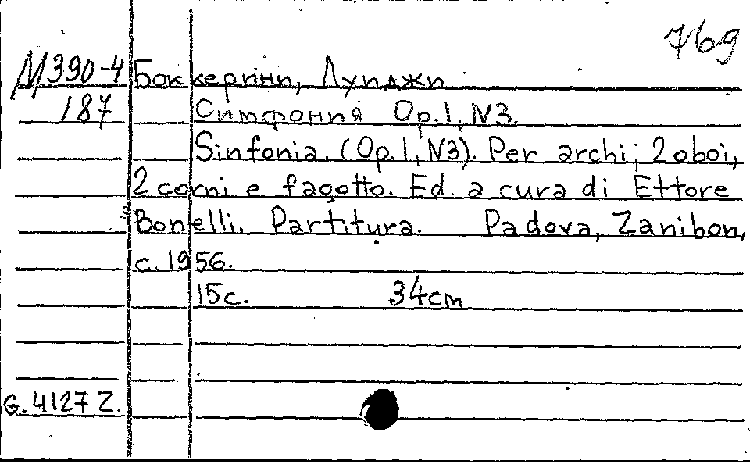 769
М390-4 Боккерини, Луиджи
187 Симфония Op.1, N3.
Sinfonia. (Op.1, N3). Per archi, 2 oboi,
2 corni e fagotto. Ed. a cura di Ettore
Bonelli. Partitura. Padova, Zanibon,
c. 1956.
15c. 34cm
G. 4127 Z.